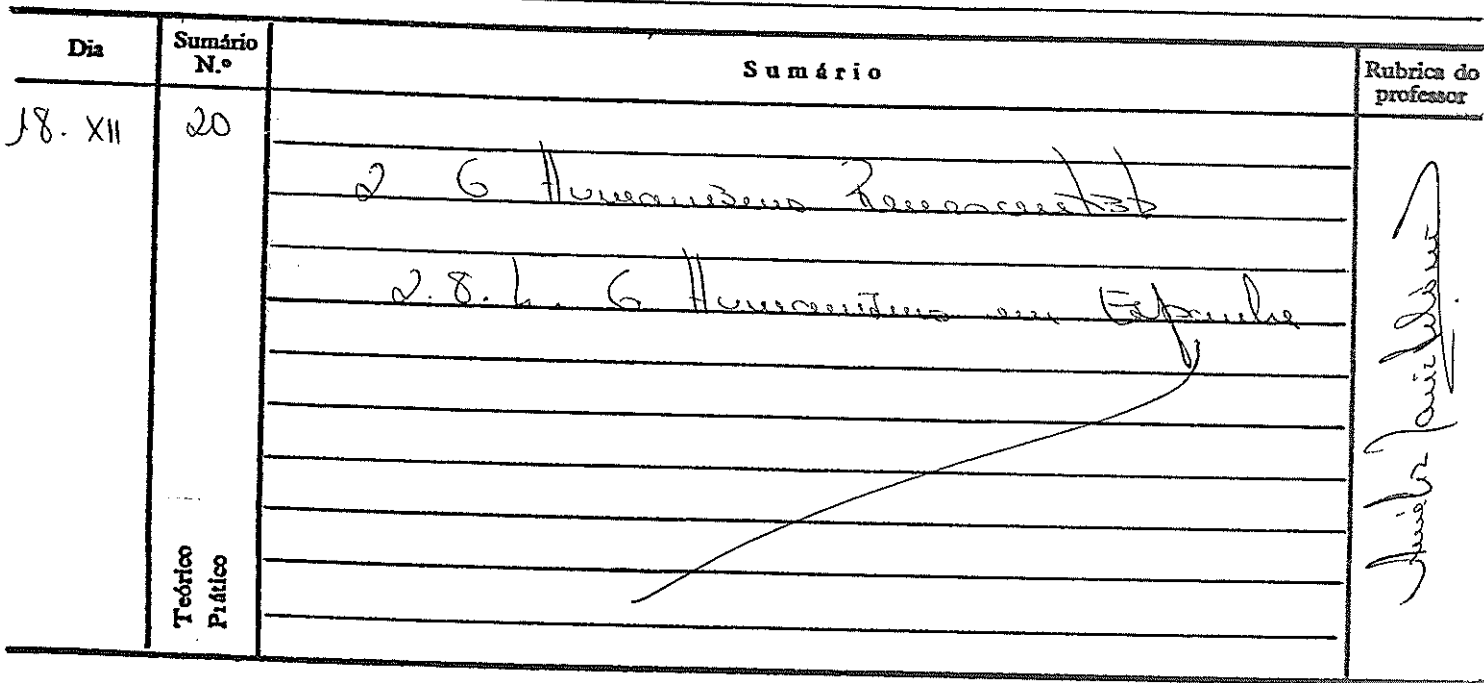 Dia
Sumário N.º
Sumário
Rubrica do professor
18. XII
20
2 O Humanismo Renascentista
2.8. O Humanismo em Espanha
Teórico
Prático